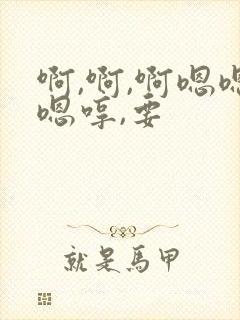 啊,啊,啊嗯嗯
嗯哼,要
就是馬甲